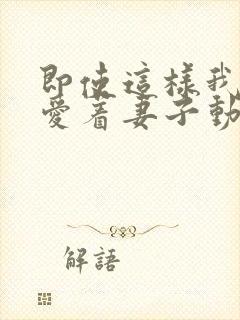 即使這樣我
愛着妻子動
解語